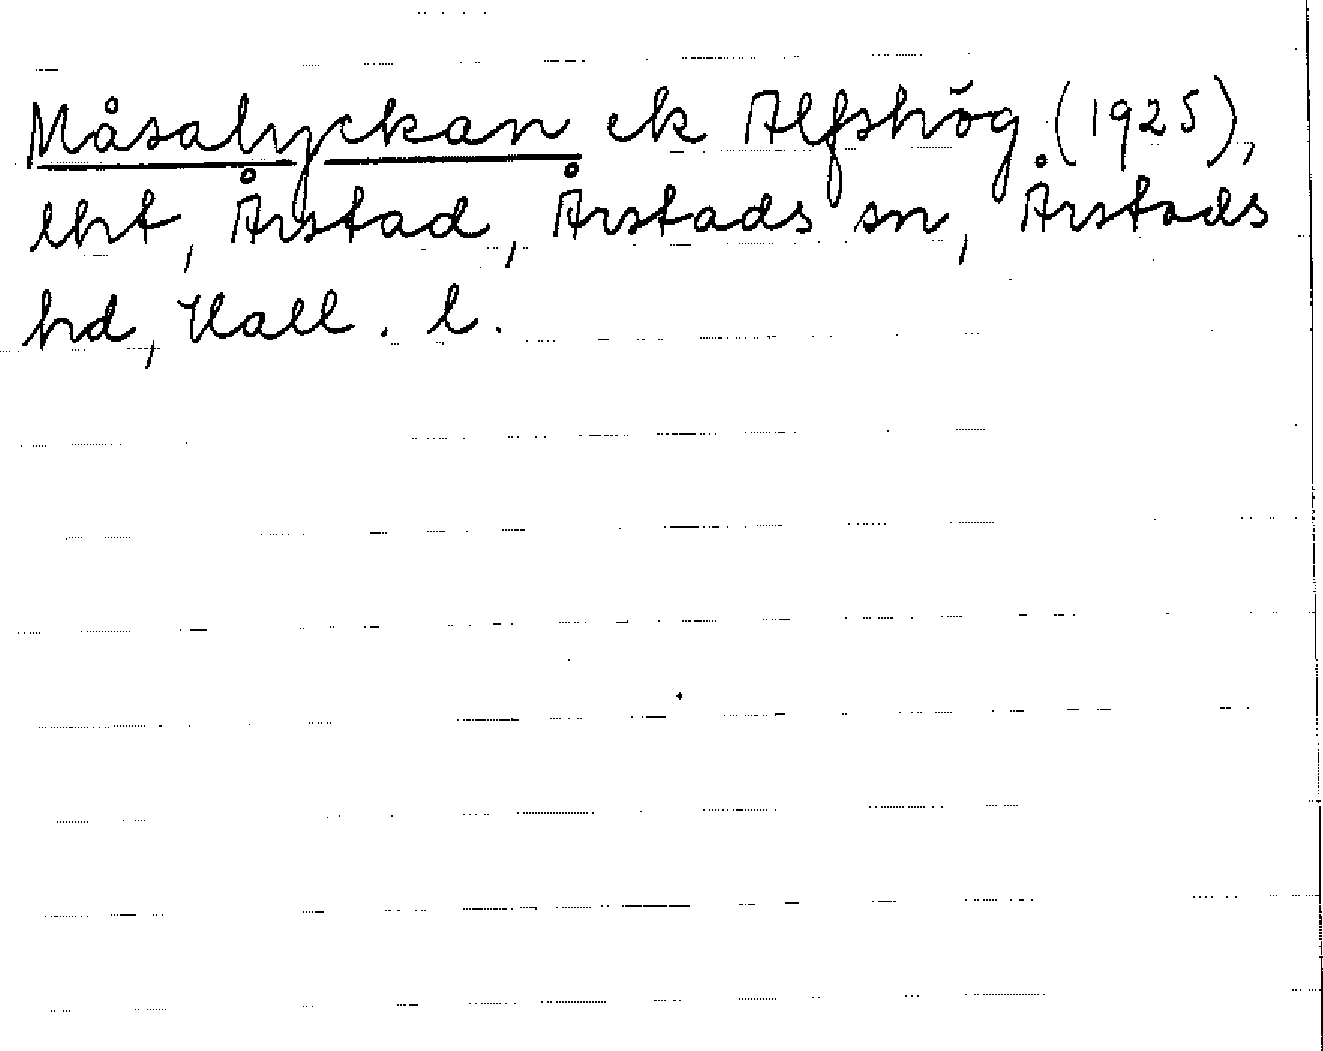 Måsalyckan ek Alfshög (1925),
lht, Årstad, Årstads sn, Årstads
hd, Hall. l.